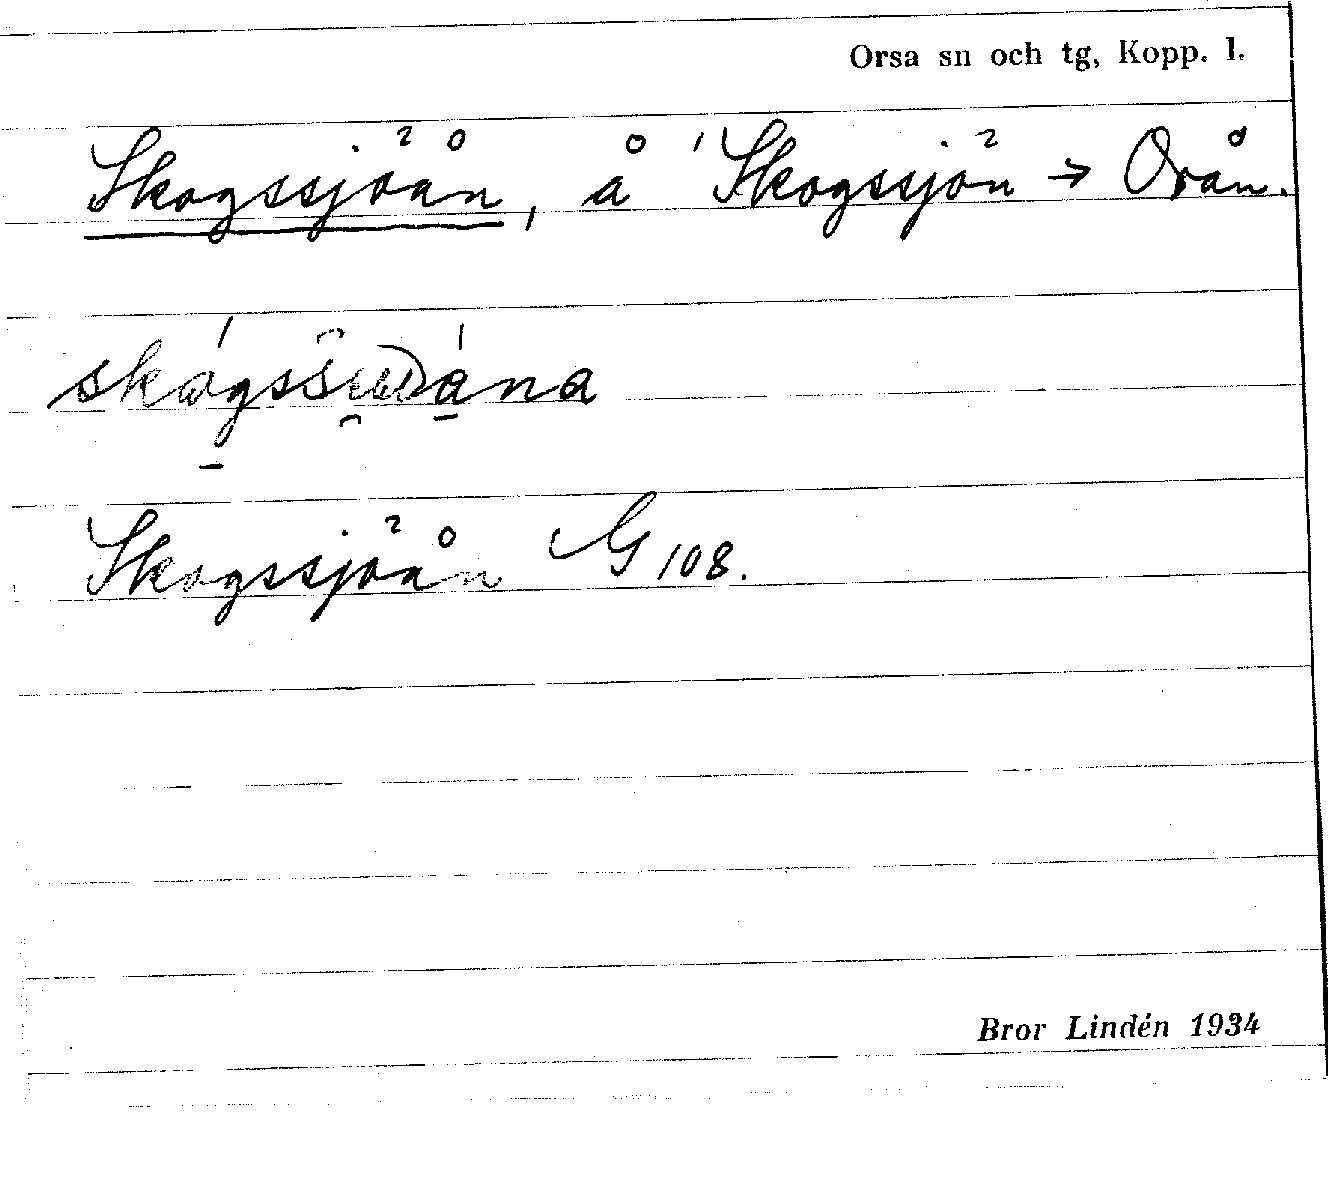 Orsa sn och tg, Kopp. l.
Skogssjöån, å ' Skogssjön → Orån.
Skogssjöån G 108.
Bror Lindén 1934